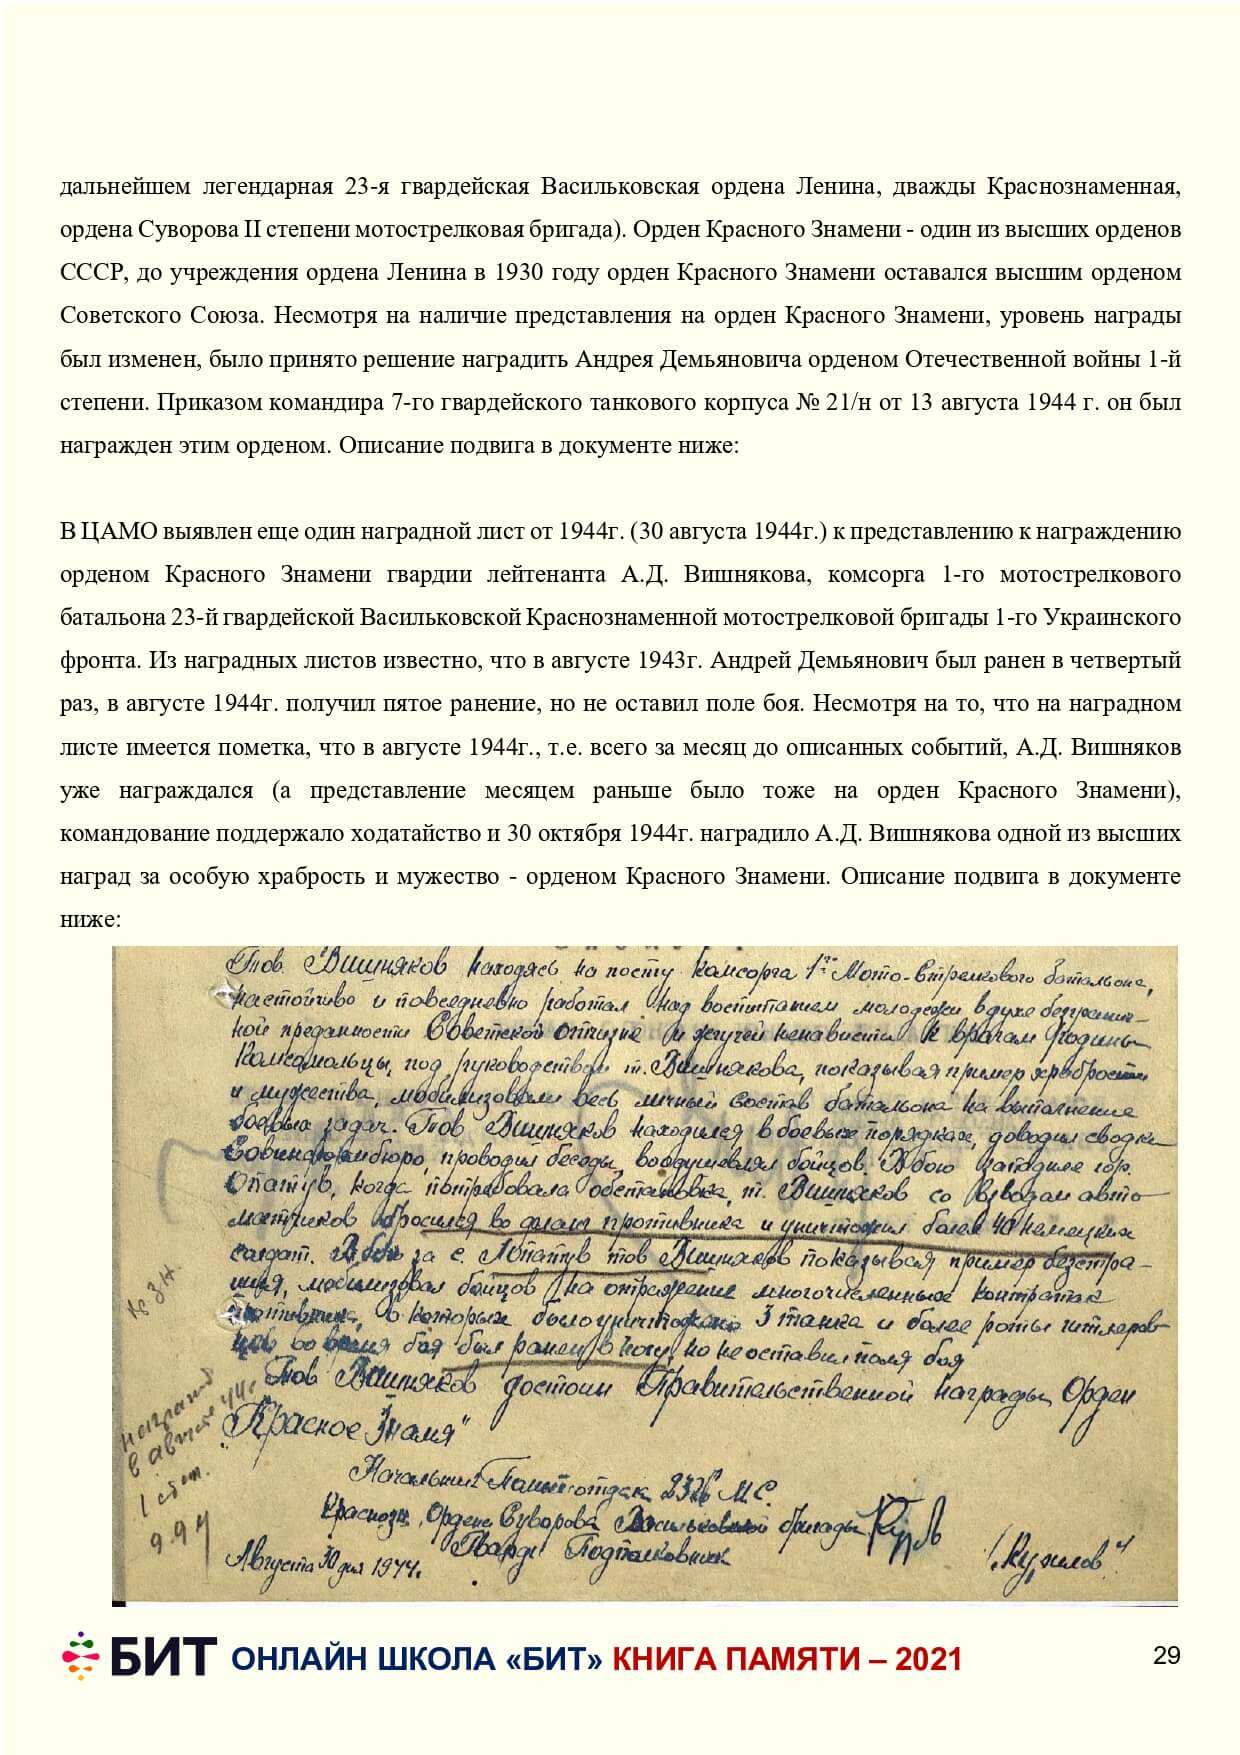 дальнейшем легендарная 23-я гвардейская Васильковская ордена Ленина, дважды Краснознаменная,
ордена Суворова II степени мотострелковая бригада). Орден Красного Знамени - один из высших орденов
СССР, до учреждения ордена Ленина в 1930 году орден Красного Знамени оставался высшим орденом
Советского Союза. Несмотря на наличие представления на орден Красного Знамени, уровень награды
был изменен, было принято решение наградить Андрея Демьяновича орденом Отечественной войны 1-й
степени. Приказом командира 7-го гвардейского танкового корпуса № 21/н от 13 августа 1944 г. он был
награжден этим орденом. Описание подвига в документе ниже:
В ЦАМО выявлен еще один наградной лист от 1944г. (30 августа 1944г.) к представлению к награждению
орденом Красного Знамени гвардии лейтенанта А.Д. Вишнякова, комсорга 1-го мотострелкового
батальона 23-й гвардейской Васильковской Краснознаменной мотострелковой бригады 1-го Украинского
фронта. Из наградных листов известно, что в августе 1943г. Андрей Демьянович был ранен в четвертый
раз, в августе 1944г. получил пятое ранение, но не оставил поле боя. Несмотря на то, что на наградном
листе имеется пометка, что в августе 1944г., т.е. всего за месяц до описанных событий, А.Д. Вишняков
уже награждался (а представление месяцем раньше было тоже на орден Красного Знамени),
командование поддержало ходатайство и 30 октября 1944г. наградило А.Д. Вишнякова одной из высших
наград за особую храбрость и мужество - орденом Красного Знамени. Описание подвига в документе
ниже:
Тов. Вишняков находясь на посту комсорга 1го Мото-Стрелкового батальона,
настойчиво и повседневно работал над воспитанием молодежи в духе безгранич-
ной преданности Советской отчизне и жгучей ненависти к врагам Родины
Комсомольцы, под руководством т. Вишнякова, показывая пример храбрости
и мужества, мобилизовали весь личный состав батальона на выполнение
боевых задач. Тов Вишняков находился в боевых порядках, доводил сводки
Совинформбюро, проводил беседы, воодушевлял бойцов. В бою западнее гор.
Опатув, когда потребовала обстановка, т. Вишняков со взводом авто-
матчиков бросился во фланг противника и уничтожил более 40 немецких
солдат. В бою за с. Лопатув тов Вишняков показывая пример безстра-
шия, мобилизовал бойцов на отражение многочисленных контратак
противника, в которых было уничтожено 3 танка и более роты гитлеров-
цев во время боя был ранен в ногу, но не оставил поля боя
Тов Вишняков достоин Правительственной награды, Орден
"Красное Знамя"
Кр З Н.
награжд
в августе 44г
1 степ.
9.9 4
Начальник Политотдела 23 гв М.С.
Краснозн, Ордена Суворова Васильковской бригады
Гвардии Подполковник
Августа 30 дня 1944.
БИТ ОНЛАЙН ШКОЛА «БИТ» КНИГА ПАМЯТИ – 2021
29